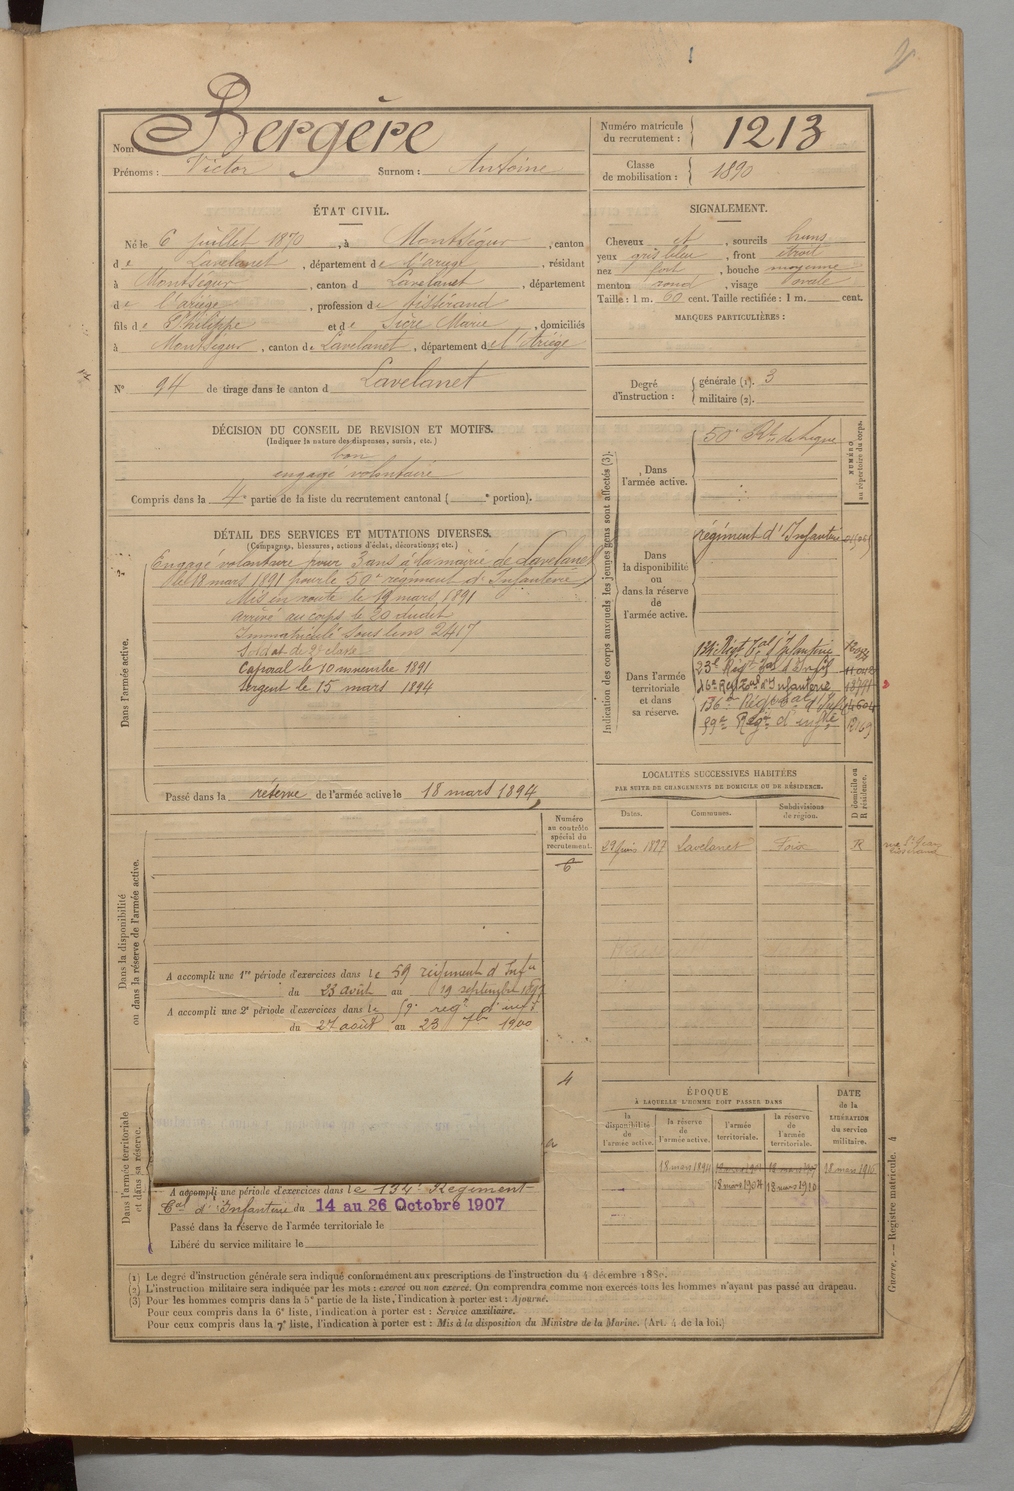 Nom Bergère
Prénoms : Victor Surnom : Antoine
Numéro matricule du recrutement : 1213
Classe de mobilisation : 1890
ÉTAT CIVIL.
Né le 6 juillet 1870, à Montségur, canton
de Lavelanet, département de l'ariège, résidant
à Montségur, canton de Lavelanet, département
de l'ariège, profession de tisserand
fils de Philippe et de Sicre Marie, domiciliés
à Montségur, canton de Lavelanet, département de l'Ariège
N° 94 de tirage dans le canton d Lavelanet
SIGNALEMENT.
Cheveux et, sourcils bruns
yeux gris bleu, front étroit
nez fort, bouche moyenne
menton rond, visage ovale
Taille : 1 m. 60 cent. Taille rectifiée : 1 m. cent.
MARQUES PARTICULIÈRES :
Degré d'instruction : générale (1). 3
militaire (2).
DÉCISION DU CONSEIL DE REVISION ET MOTIFS.
(Indiquer la nature des dispenses, sursis, etc.)
bon
engagé volontaire
Compris dans la 4e partie de la liste du recrutement cantonal ( e portion).
DÉTAIL DES SERVICES ET MUTATIONS DIVERSES.
(Campagnes, blessures, actions d'éclat, décorations, etc.)
Dans l'armée active.
Engagé volontaire pour 3 ans à la mairie de Lavelanet
le 18 mars 1891 pour le 50e régiment d'Infanterie
Mis en route le 19 mars 1891
arrivé au corps le 20 dudit
Immatriculé sous le no 2417
Soldat de 2e classe
Caporal le 10 novembre 1891
Sergent le 15 mars 1894
Passé dans la réserve de l'armée active le 18 mars 1894
Indication des corps auxquels les jeunes gens sont affectés (3).
NUMÉRO au répertoire du corps.
Dans l'armée active.
50e Rt de ligne
Dans la disponibilité ou dans la réserve de l'armée active.
régiment d'Infanterie
Dans l'armée territoriale et dans sa réserve.
134 Régt tal d'Infanterie
23e Régt d'Infie
136e Régt d'Infie
59e Régt d'infie R169
LOCALITÉS SUCCESSIVES HABITÉES
PAR SUITE DE CHANGEMENTS DE DOMICILE OU DE RÉSIDENCE.
Dates. Communes. Subdivisions de région. D domicile ou R résidence.
29 juin 1897 Lavelanet Foix R
Numéro au contrôle spécial du recrutement.
6
Dans la disponibilité ou dans la réserve de l'armée active.
A accompli une 1re période d'exercices dans le 59 régiment d'Infie
du 23 août au 19 septembre 1897
A accompli une 2e période d'exercices dans le 59e regt d'infie
du 27 août au 23 7bre 1900
4
Dans l'armée territoriale et dans sa réserve.
A accompli une période d'exercices dans le 134e Régiment
tal d'Infanterie du 14 au 26 Octobre 1907
Passé dans la réserve de l'armée territoriale le
Libéré du service militaire le
ÉPOQUE
À LAQUELLE L'HOMME DOIT PASSER DANS
DATE de la LIBÉRATION du service militaire.
la disponibilité de l'armée active. la réserve de l'armée active. l'armée territoriale. la réserve de l'armée territoriale.
18 mars 1894 18 mars 1916
18 mars 1904 18 mars 1910
(1) Le degré d'instruction générale sera indiqué conformément aux prescriptions de l'instruction du 4 décembre 1889.
(2) L'instruction militaire sera indiquée par les mots : exercé ou non exercé. On comprendra comme non exercés tous les hommes n'ayant pas passé au drapeau.
(3) Pour les hommes compris dans la 5e partie de la liste, l'indication à porter est : Ajourné.
Pour ceux compris dans la 6e liste, l'indication à porter est : Service auxiliaire.
Pour ceux compris dans la 7e liste, l'indication à porter est : Mis à la disposition du Ministre de la Marine. (Art. 4 de la loi.)
Guerre. — Registre matricule. 4